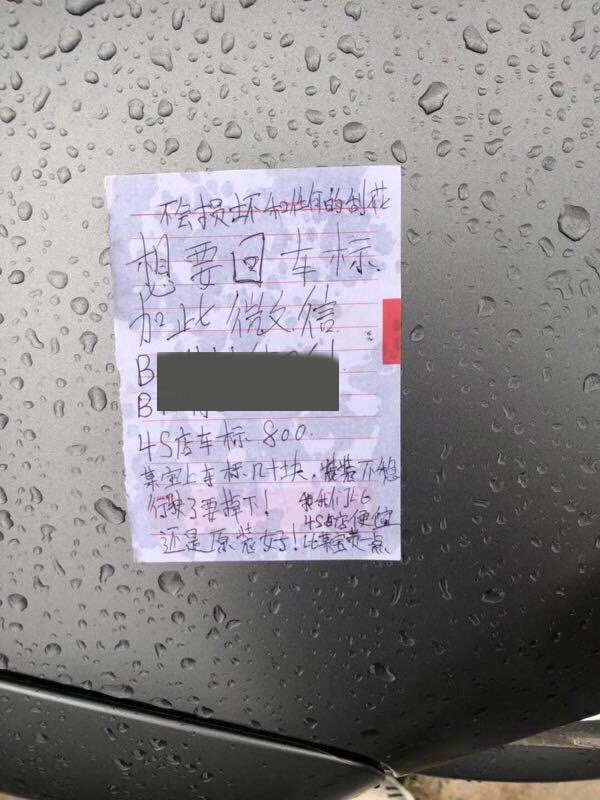 不会损坏和任何的刮花
想要回车标
加此微信
B
B
4S店车标 800.
某宝上车标几十块,安装不够
行驶了要掉下!
还是原装好!
我们比
4S店便宜
比某宝贵点